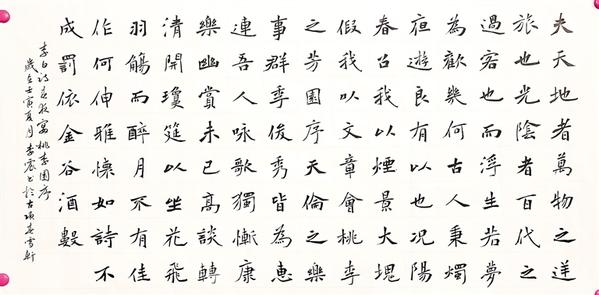 夫天地者萬物之逆
旅也光陰者百代之
過客也而浮生若夢
為歡幾何古人秉燭
夜遊良有以也况陽
春召我以煙景大塊
假我以文章會桃李
之芳園序天倫之樂
事群季俊秀皆為惠
連吾人咏歌獨慚康
樂幽賞未已高談轉
清開瓊筵以坐花飛
羽觴而醉月不有佳
作何伸雅懷如詩不
成罰依金谷酒數
李白詩春夜宴桃李園序
歲在壬寅夏月李震書於古項雪軒